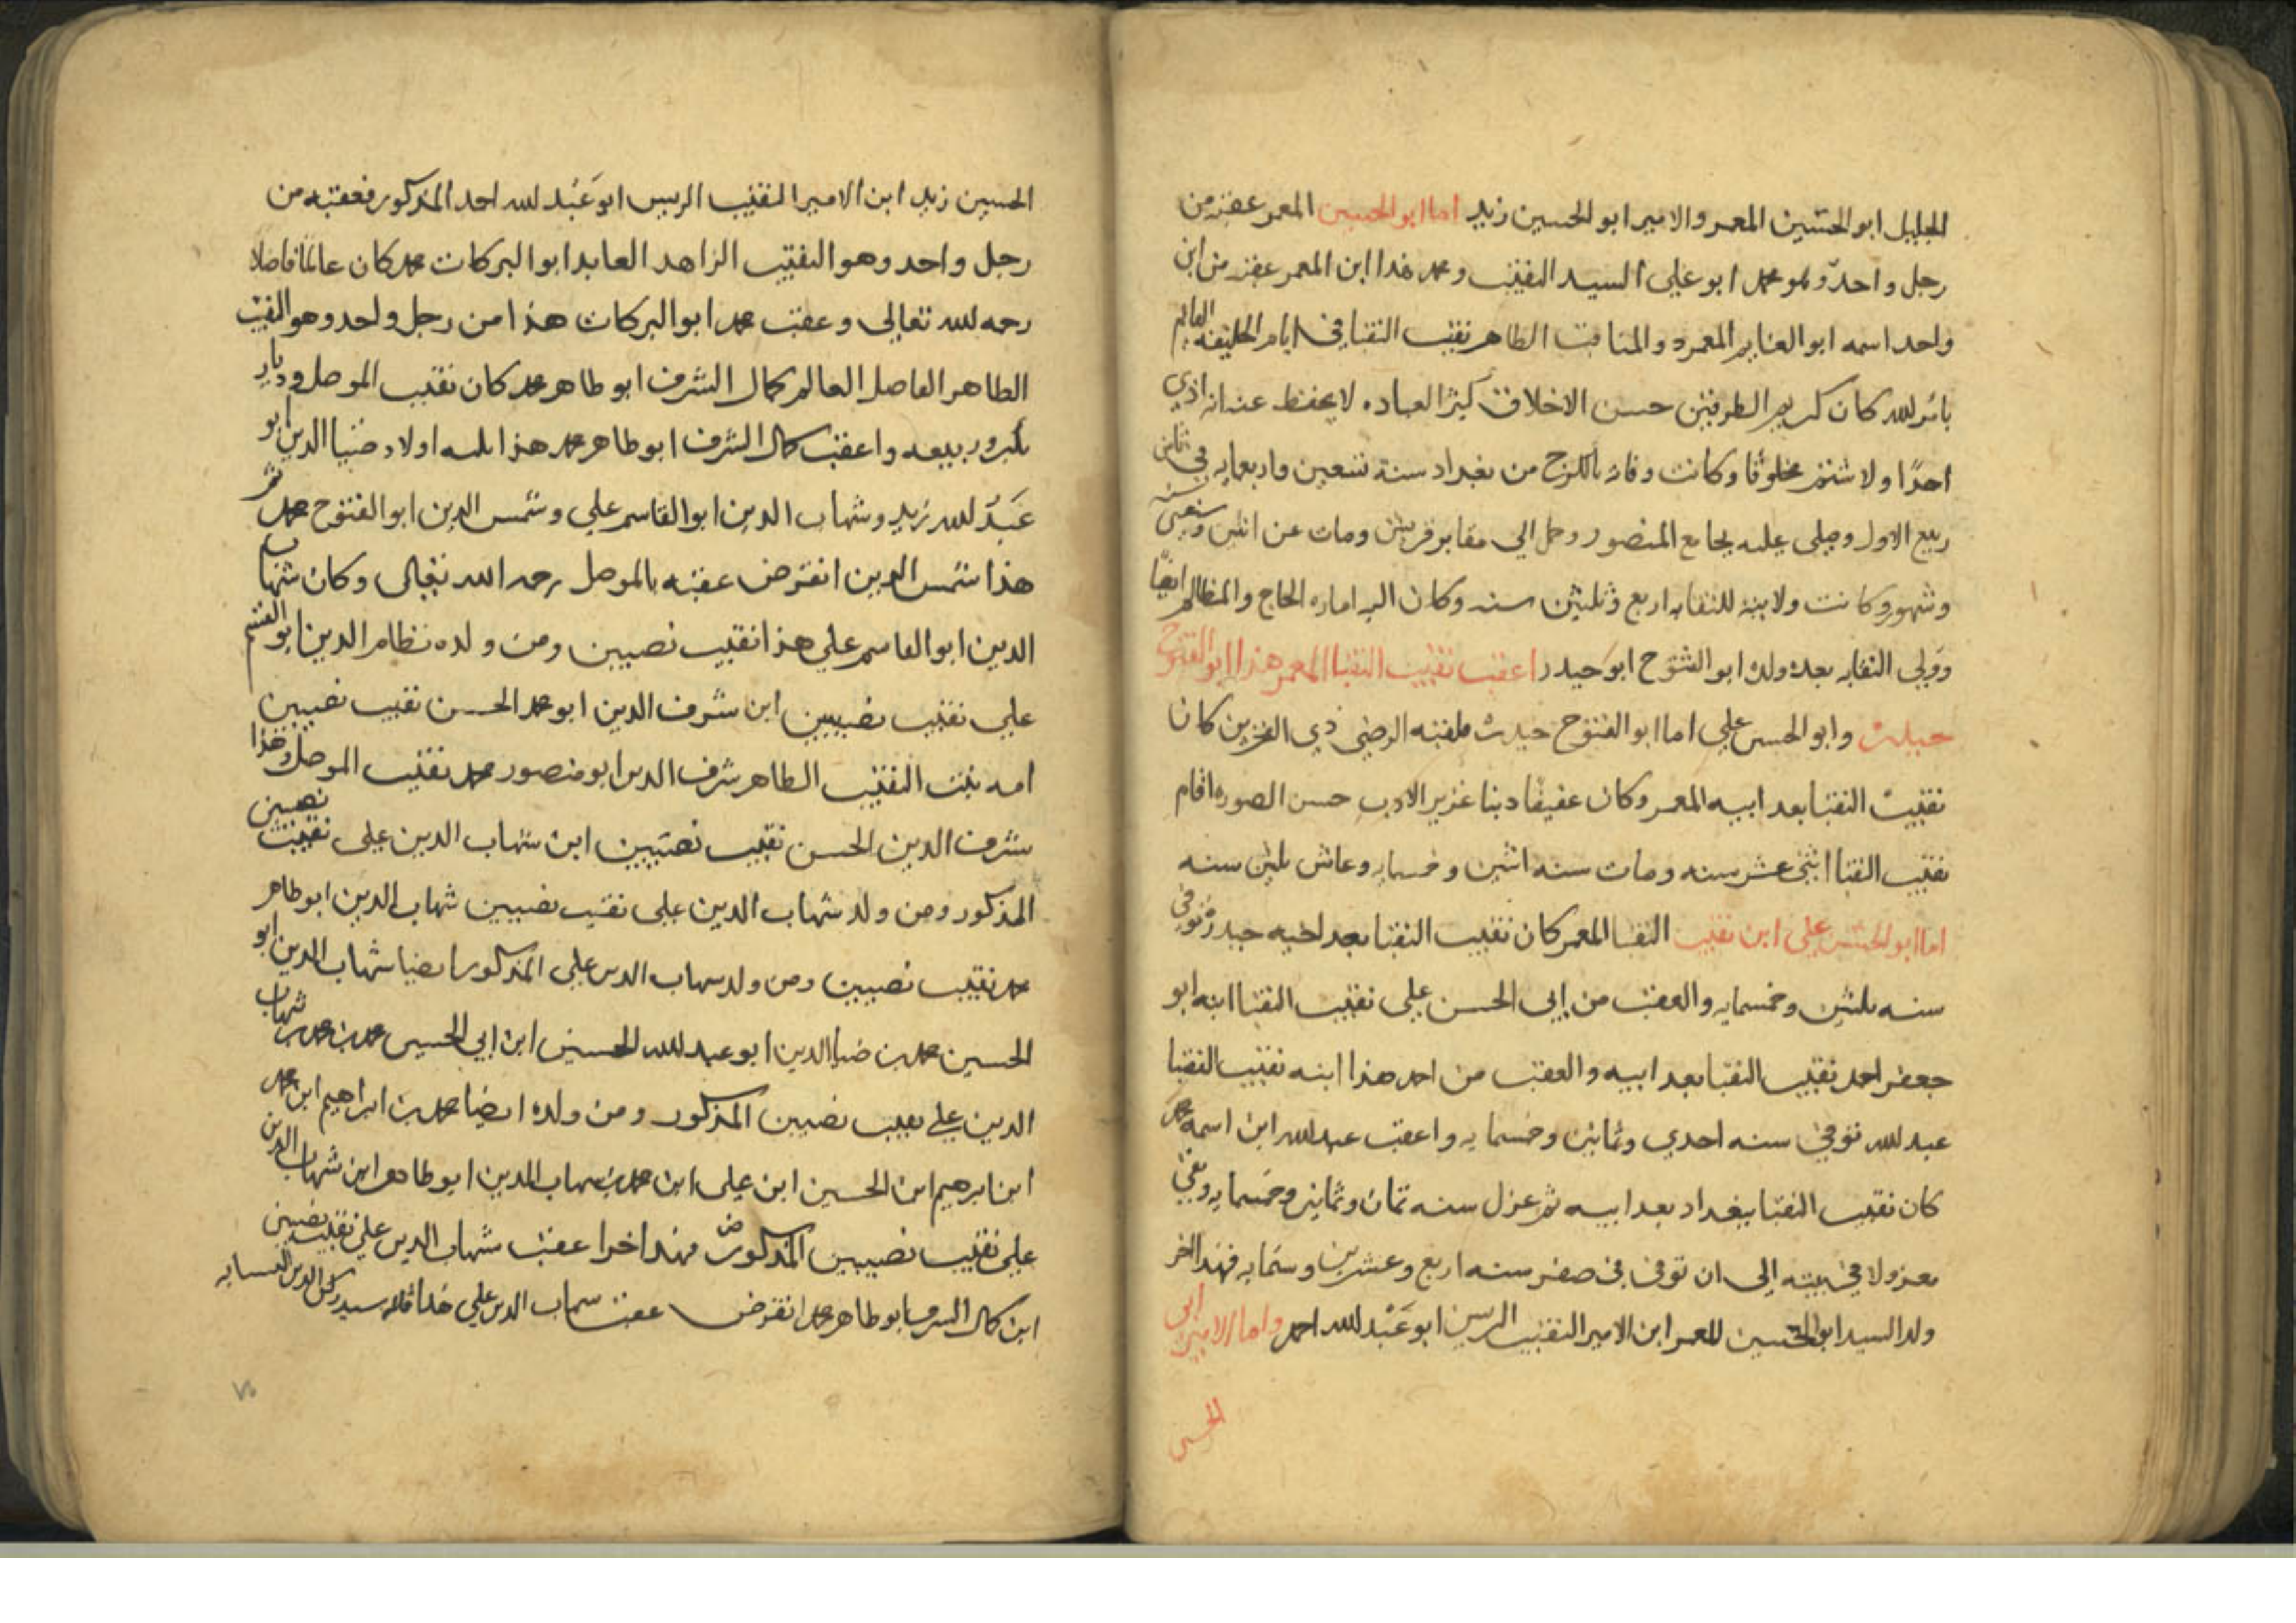 الجليل ابو الحسين المعمر والامير ابو الحسين زيد اما ابو الحسين المعمر عقبه من
رجل واحد وهو محمد ابو علي السيد النقيب ومحمد هذا ابن المعمر عقبه من ابن
واحد اسمه ابو الغنايم المعمر ذو المناقب الطاهر نقيب النقبا في ايام الخليفه القايم
بامر الله كان كريم الطرفين حسن الاخلاق كثير العباده لا يحفظ عنه انه اذي
احدًا ولا شتم مخلوقا وكانت وفاته بالكرخ من بغداد سنة تسعين واربعمايه في ثامن
ربيع الاول وصلى عليه بجامع المنصور وحمل الي مقابر قريش ومات عن اثنين وسبعين سنه
وشهور وكانت ولايته للنقابه اربع وثلثين سنه وكان اليه اماره الحاج والمظالم ايضًا
وولي النقابه بعده ولده ابو الفتوح ابو حيدر اعقب نقيب النقبا المعمر هذا ابو الفتوح
حيدرة وابو الحسن علي اما ابو الفتوح حيدرة فلقبه الرضي ذي الفخرين كان
نقيب النقبا بعد ابيه المعمر وكان عفيفا دينا غزير الادب حسن الصوره اقام
نقيب النقبا اثني عشر سنه ومات سنه اثنين وخمسمايه وعاش ثلثين سنه
اما ابو الحسن علي ابن نقيب النقبا المعمر كان نقيب النقبا بعد اخيه حيدرة توفي
سنه ثلثين وخمسمايه والعقب من ابي الحسن علي نقيب النقبا ابنه ابو
جعفر احمد نقيب النقبا بعد ابيه والعقب من احمد هذا ابنه نقيب النقبا
عبد الله توفي سنه احدي وثمانين وخمسمايه واعقب عبد الله ابن اسمه محمد
كان نقيب النقبا ببغداد بعد ابيه ثم عزل سنه ثمان وثمانين وخمسمايه وبقي
معزولا في بيته الى ان توفى في صفر سنه اربع وعشرين وستمايه فهذا اخر
ولد السيد ابو الحسين المعمر ابن الامير النقيب الريس ابو عبد الله احمد واما الامير ابي
الحسين
الحسين زيد ابن الامير النقيب الريس ابو عبد الله احمد المذكور فعقبه من
رجل واحد وهو النقيب الزاهد العابد ابو البركات محمد كان عالما فاضلا
رحمه الله تعالي وعقب محمد ابو البركات هذا من رجل واحد وهو النقيب
الطاهر الفاضل العالم كمال الشرف ابو طاهر محمد كان نقيب الموصل وديار
بكر وربيعه واعقب كمال الشرف ابو طاهر محمد هذا ثلثه اولاد ضيا الدين ابو
عبد الله زيد وشهاب الدين ابو القاسم علي وشمس الدين ابو الفتوح محمد ثم
هذا شمس الدين انقرض عقبه بالموصل رحمه الله تعالى وكان شهاب
الدين ابو القاسم علي هذا نقيب نصيبين ومن ولده نظام الدين ابو القسم
علي نقيب نصيبين ابن شرف الدين ابو محمد الحسن نقيب نصيبين
امه بنت النقيب الطاهر شرف الدين ابو منصور محمد نقيب الموصل وهذا
شرف الدين الحسن نقيب نصيبين ابن شهاب الدين علي نقيب نصيبين
المذكور ومن ولد شهاب الدين علي نقيب نصيبين شهاب الدين ابو طاهر
محمد نقيب نصيبين ومن ولد شهاب الدين علي المذكور ايضا شهاب الدين ابو
الحسين محمد بن ضيا الدين ابو عبد الله الحسين ابن ابي الحسين محمد بن محمد بن شهاب
الدين علي نقيب نصيبين المذكور ومن ولده ايضا محمد بن ابراهيم ابن محمد
ابن ابرهيم ابن الحسين ابن علي ابن محمد بن شهاب الدين ابو طاهر ابن شهاب الدين
علي نقيب نصيبين المذكور فهذا اخر اعقب شهاب الدين علي نقيب نصيبين
ابن كمال الشرف ابو طاهر محمد انقرض عقب شهاب الدين علي هذا قاله سيد ركن الدين النسابه